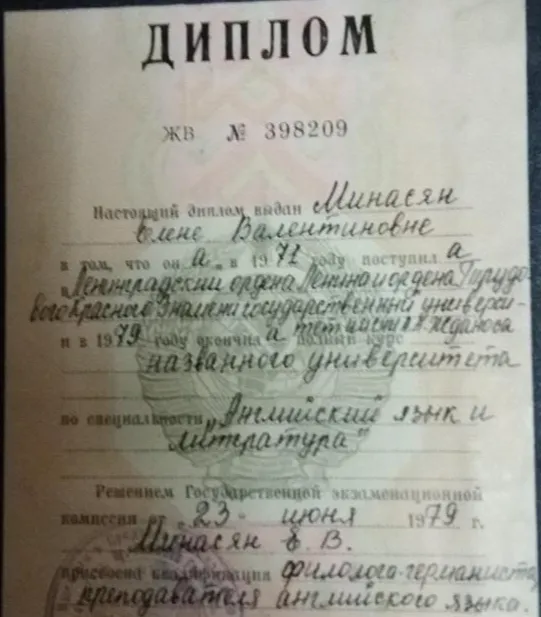 ДИПЛОМ
ЖВ № 398209
Настоящий диплом выдан Минасян
Елене Валентиновне
в том, что он а в 1971 году поступил а
в Ленинградский ордена Ленина и ордена Трудо
вого Красного Знамени государственный универси-
тет имени А.А. Жданова
и в 1979 году окончил а полный курс
названного университета
по специальности „Английский язык и
литература"
Решением Государственной экзаменационной
комиссии от „23" июня 1979 г.
Минасян Е. В.
присвоена квалификация филолога-германиста,
преподавателя английского языка.